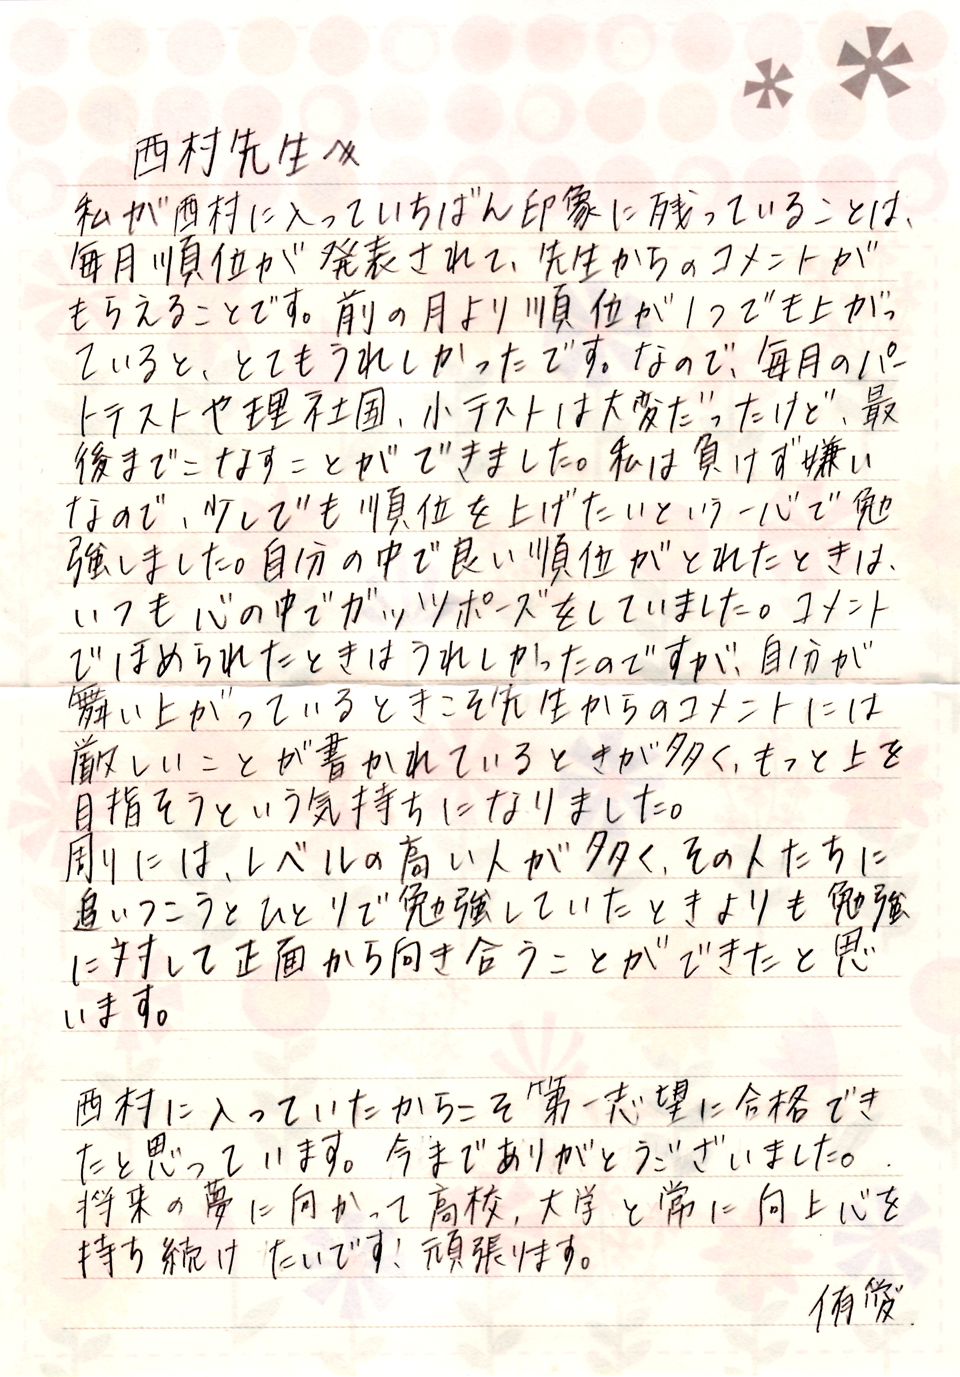 西村先生へ
私が西村に入っていちばん印象に残っていることは、
毎月順位が発表されて、先生からのコメントが
もらえることです。前の月より順位が1つでも上がっ
ていると、とてもうれしかったです。なので、毎月のパー
トテストや理社国、小テストは大変だったけど、最
後までこなすことができました。私は負けず嫌い
なので、少しでも順位を上げたいという一心で勉
強しました。自分の中で良い順位がとれたときは、
いつも心の中でガッツポーズをしていました。コメント
でほめられたときはうれしかったのですが、自分が
舞い上がっているときこそ先生からのコメントには
厳しいことが書かれているときが多く、もっと上を
目指そうという気持ちになりました。
周りには、レベルの高い人が多く、その人たちに
追いつこうとひとりで勉強していたときよりも勉強
に対して正面から向き合うことができたと思
います。
西村に入っていたからこそ第一志望に合格でき
たと思っています。今までありがとうございました。
将来の夢に向かって高校、大学と常に向上心を
持ち続けたいです!頑張ります。
侑愛